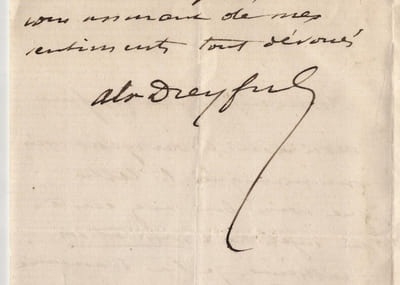 vous assurant de mes
sentiments tout dévoués
Dreyfus